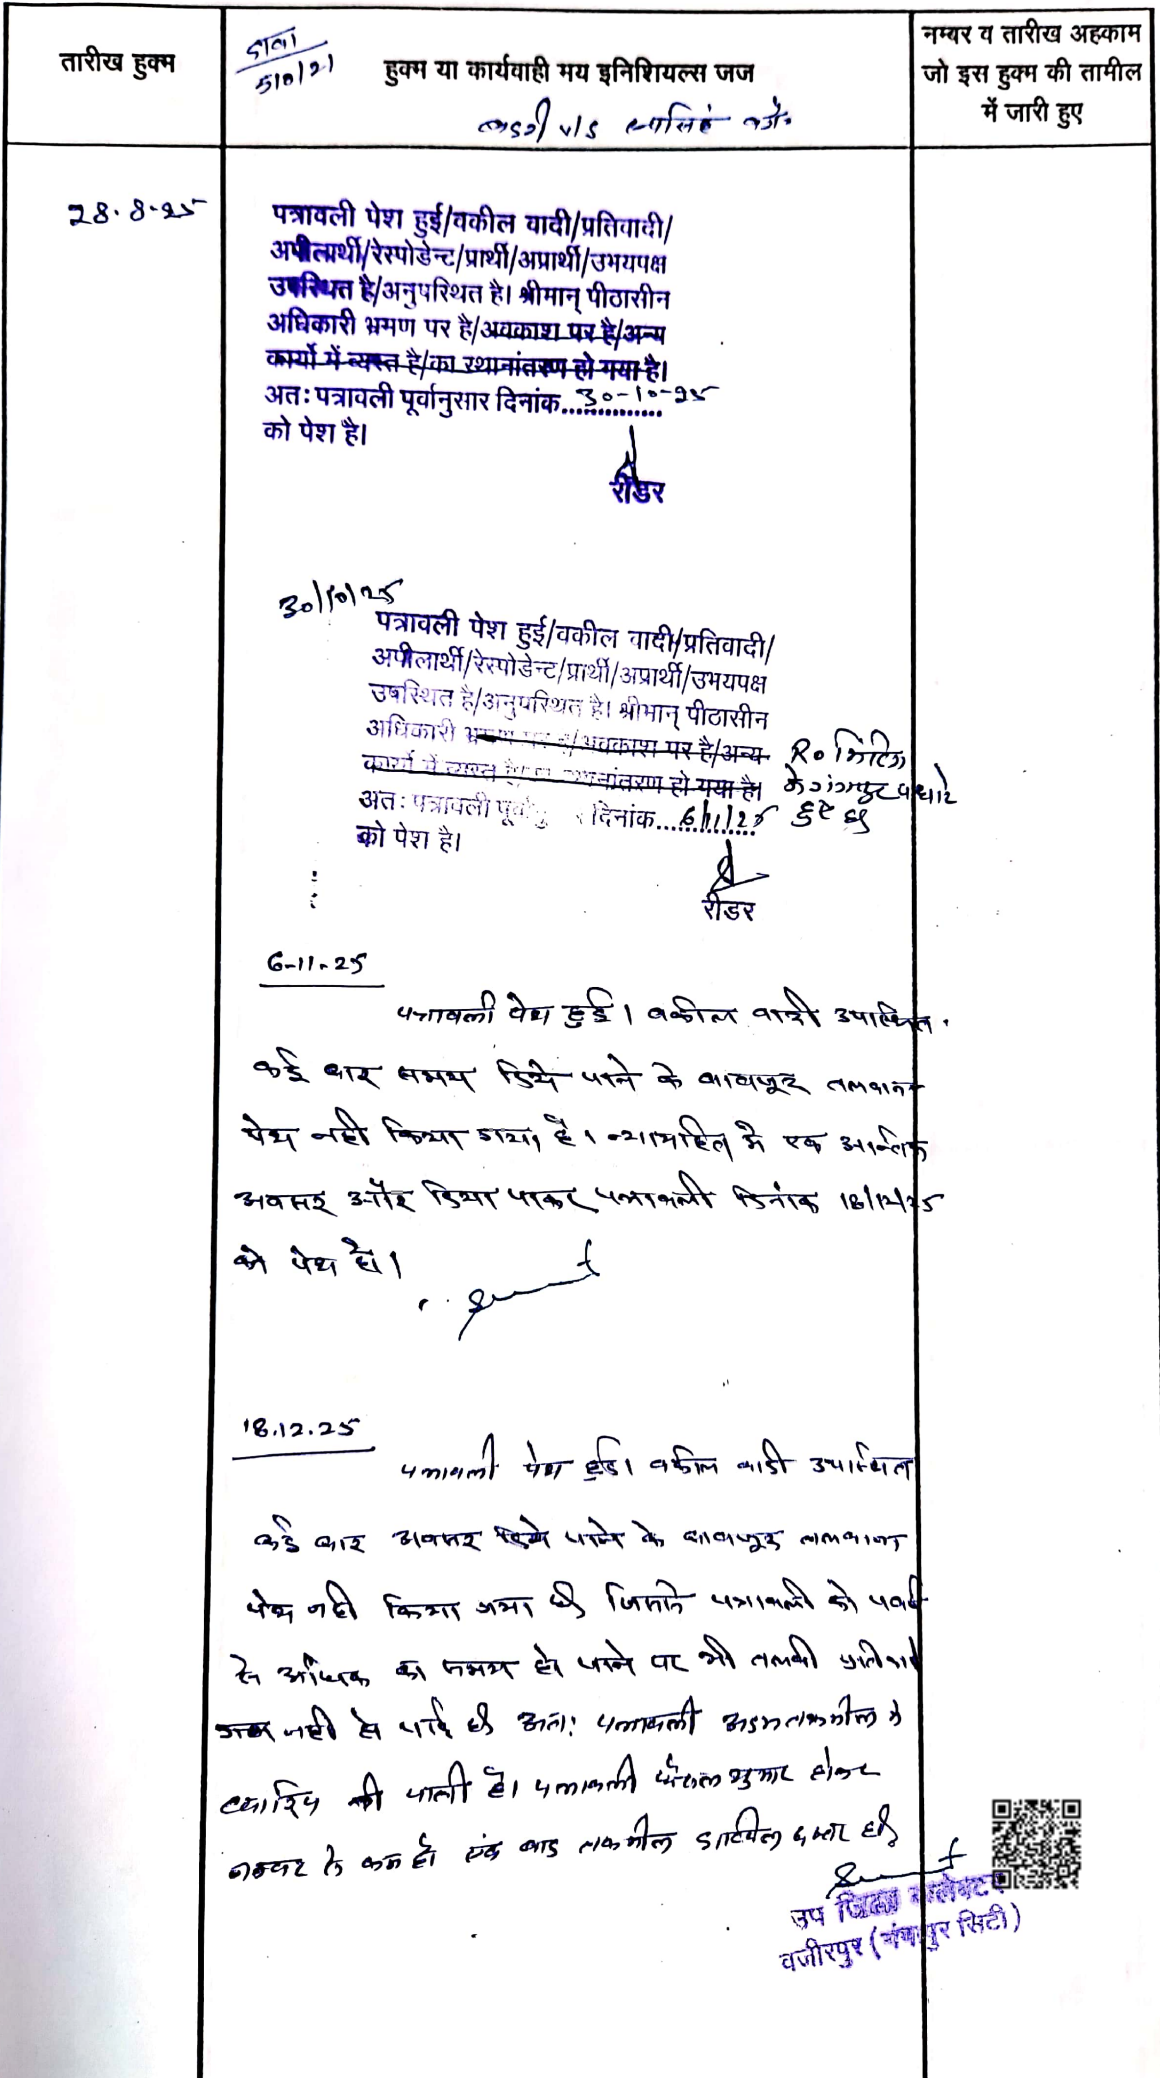 तारीख हुक्म
दावा
5/0/21
हुक्म या कार्यवाही मय इनिशियल्स जज
v/s
नम्बर व तारीख अहकाम
जो इस हुक्म की तामील
में जारी हुए
28.8.25
पत्रावली पेश हुई/वकील वादी/प्रतिवादी/
अपीलार्थी/रेस्पोडेन्ट/प्रार्थी/अप्रार्थी/उभयपक्ष
उपस्थित है/अनुपस्थित है। श्रीमान् पीठासीन
अधिकारी भ्रमण पर है/अवकाश पर है/अन्य
कार्यो में व्यस्त है/का स्थानांतरण हो गया है।
अतः पत्रावली पूर्वानुसार दिनांक..30-10-25
को पेश है।
रीडर
30/10/25
पत्रावली पेश हुई/वकील वादी/प्रतिवादी/
अपीलार्थी/रेस्पोडेन्ट/प्रार्थी/अप्रार्थी/उभयपक्ष
उपस्थित है/अनुपस्थित है। श्रीमान् पीठासीन
अधिकारी भ्रमण पर है/अवकाश पर है/अन्य
कार्यो में व्यस्त है/का स्थानांतरण हो गया है।
अतः पत्रावली पूर्वानु दिनांक....6/11/25
को पेश है।
रीडर
6-11-25
पत्रावली पेश हुई। वकील वादी उपस्थित।
कई बार समय दिये जाने के बावजूद तलवाना
पेश नही किया गया है। न्यायहित मे एक अन्तिम
अवसर और दिया जाकर पत्रावली दिनांक 18/12/25
को पेश हो।
18.12.25
पत्रावली पेश हुई। वकील वादी उपस्थित
कई बार अवसर दिये जाने के बावजूद तलवाना
पेश नही किया गया है। जिससे पत्रावली को
से अधिक का समय हो जाने पर भी तलबी प्रतिवादी
नही हो पाई है। अतः पत्रावली अदमतकमील मे
खारिज की जाती है। पत्रावली फैसल शुमार होकर
नम्बर से कम हो एवं बाद तकमील दाखिल दफ्तर हो।
उप जिला कलेक्टर
वजीरपुर (गंगापुर सिटी)